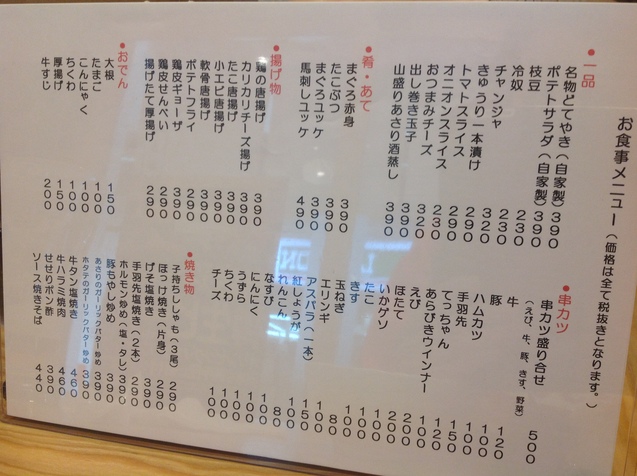 お食事メニュー（価格は全て税抜きとなります。）
●一品
名物どてやき（自家製）390
ポテトサラダ（自家製）390
枝豆 230
冷奴 230
チャンジャ 320
きゅうり一本漬け
トマトスライス 290
オニオンスライス 290
おつまみチーズ 230
出し巻き玉子 320
山盛りあさり酒蒸し 390
●肴・あて
まぐろ赤身 390
たこぶつ 390
まぐろユッケ 390
馬刺しユッケ 490
●揚げ物
鶏の唐揚げ 390
カリカリチーズ揚げ 390
たこ唐揚げ 390
小エビ唐揚げ 390
軟骨唐揚げ 390
ポテトフライ 290
鶏皮ギョーザ 390
鶏皮せんべい 290
揚げたて厚揚げ 290
●おでん
大根 150
たまご 100
こんにゃく 100
ちくわ 100
厚揚げ 150
牛すじ 200
●串カツ
串カツ盛り合せ 500
（えび、牛、豚、きす、野菜）
牛
豚 120
ハムカツ 100
手羽先 150
てっちゃん
あらびきウインナー 120
えび 200
ほたて 200
いかゲソ 100
たこ 100
きす 100
玉ねぎ 100
エリンギ 100
アスパラ（一本）150
紅しょうが 100
れんこん 80
なすび 80
にんにく 100
うずら 100
ちくわ 100
チーズ 100
●焼き物
子持ちししゃも（3尾）290
ほっけ焼き（片身）290
げそ塩焼き 390
手羽先塩焼き（2本）290
ホルモン炒め（塩・タレ）390
豚もやし炒め 390
あさりのガーリックバター炒め 390
ホタテのガーリックバター炒め 390
牛タン塩焼き 460
牛ハラミ焼肉 460
せせりポン酢 390
ソース焼きそば 440